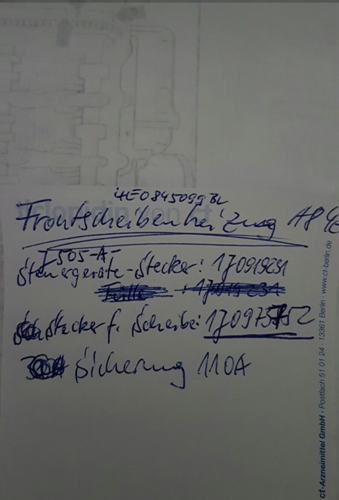 4E0845099BL
Frontscheibenheizung A8 4E
J505-A-
Steuergeräte-Stecker: 1J0919231
Stecker f. Scheibe: 1J0975752
Sicherung 110A
ct-Arzneimittel GmbH · Postfach 51 01 24 · 13361 Berlin · www.ct-berlin.de